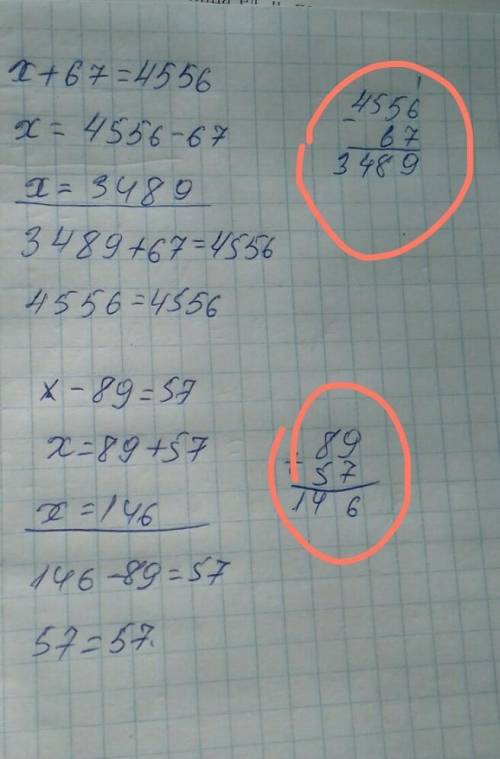 x + 67 = 4556
x = 4556 - 67
x = 3489
3489 + 67 = 4556
4556 = 4556
1
4556
- 67
3489
x - 89 = 57
x = 89 + 57
x = 146
146 - 89 = 57
57 = 57.
89
+ 57
146